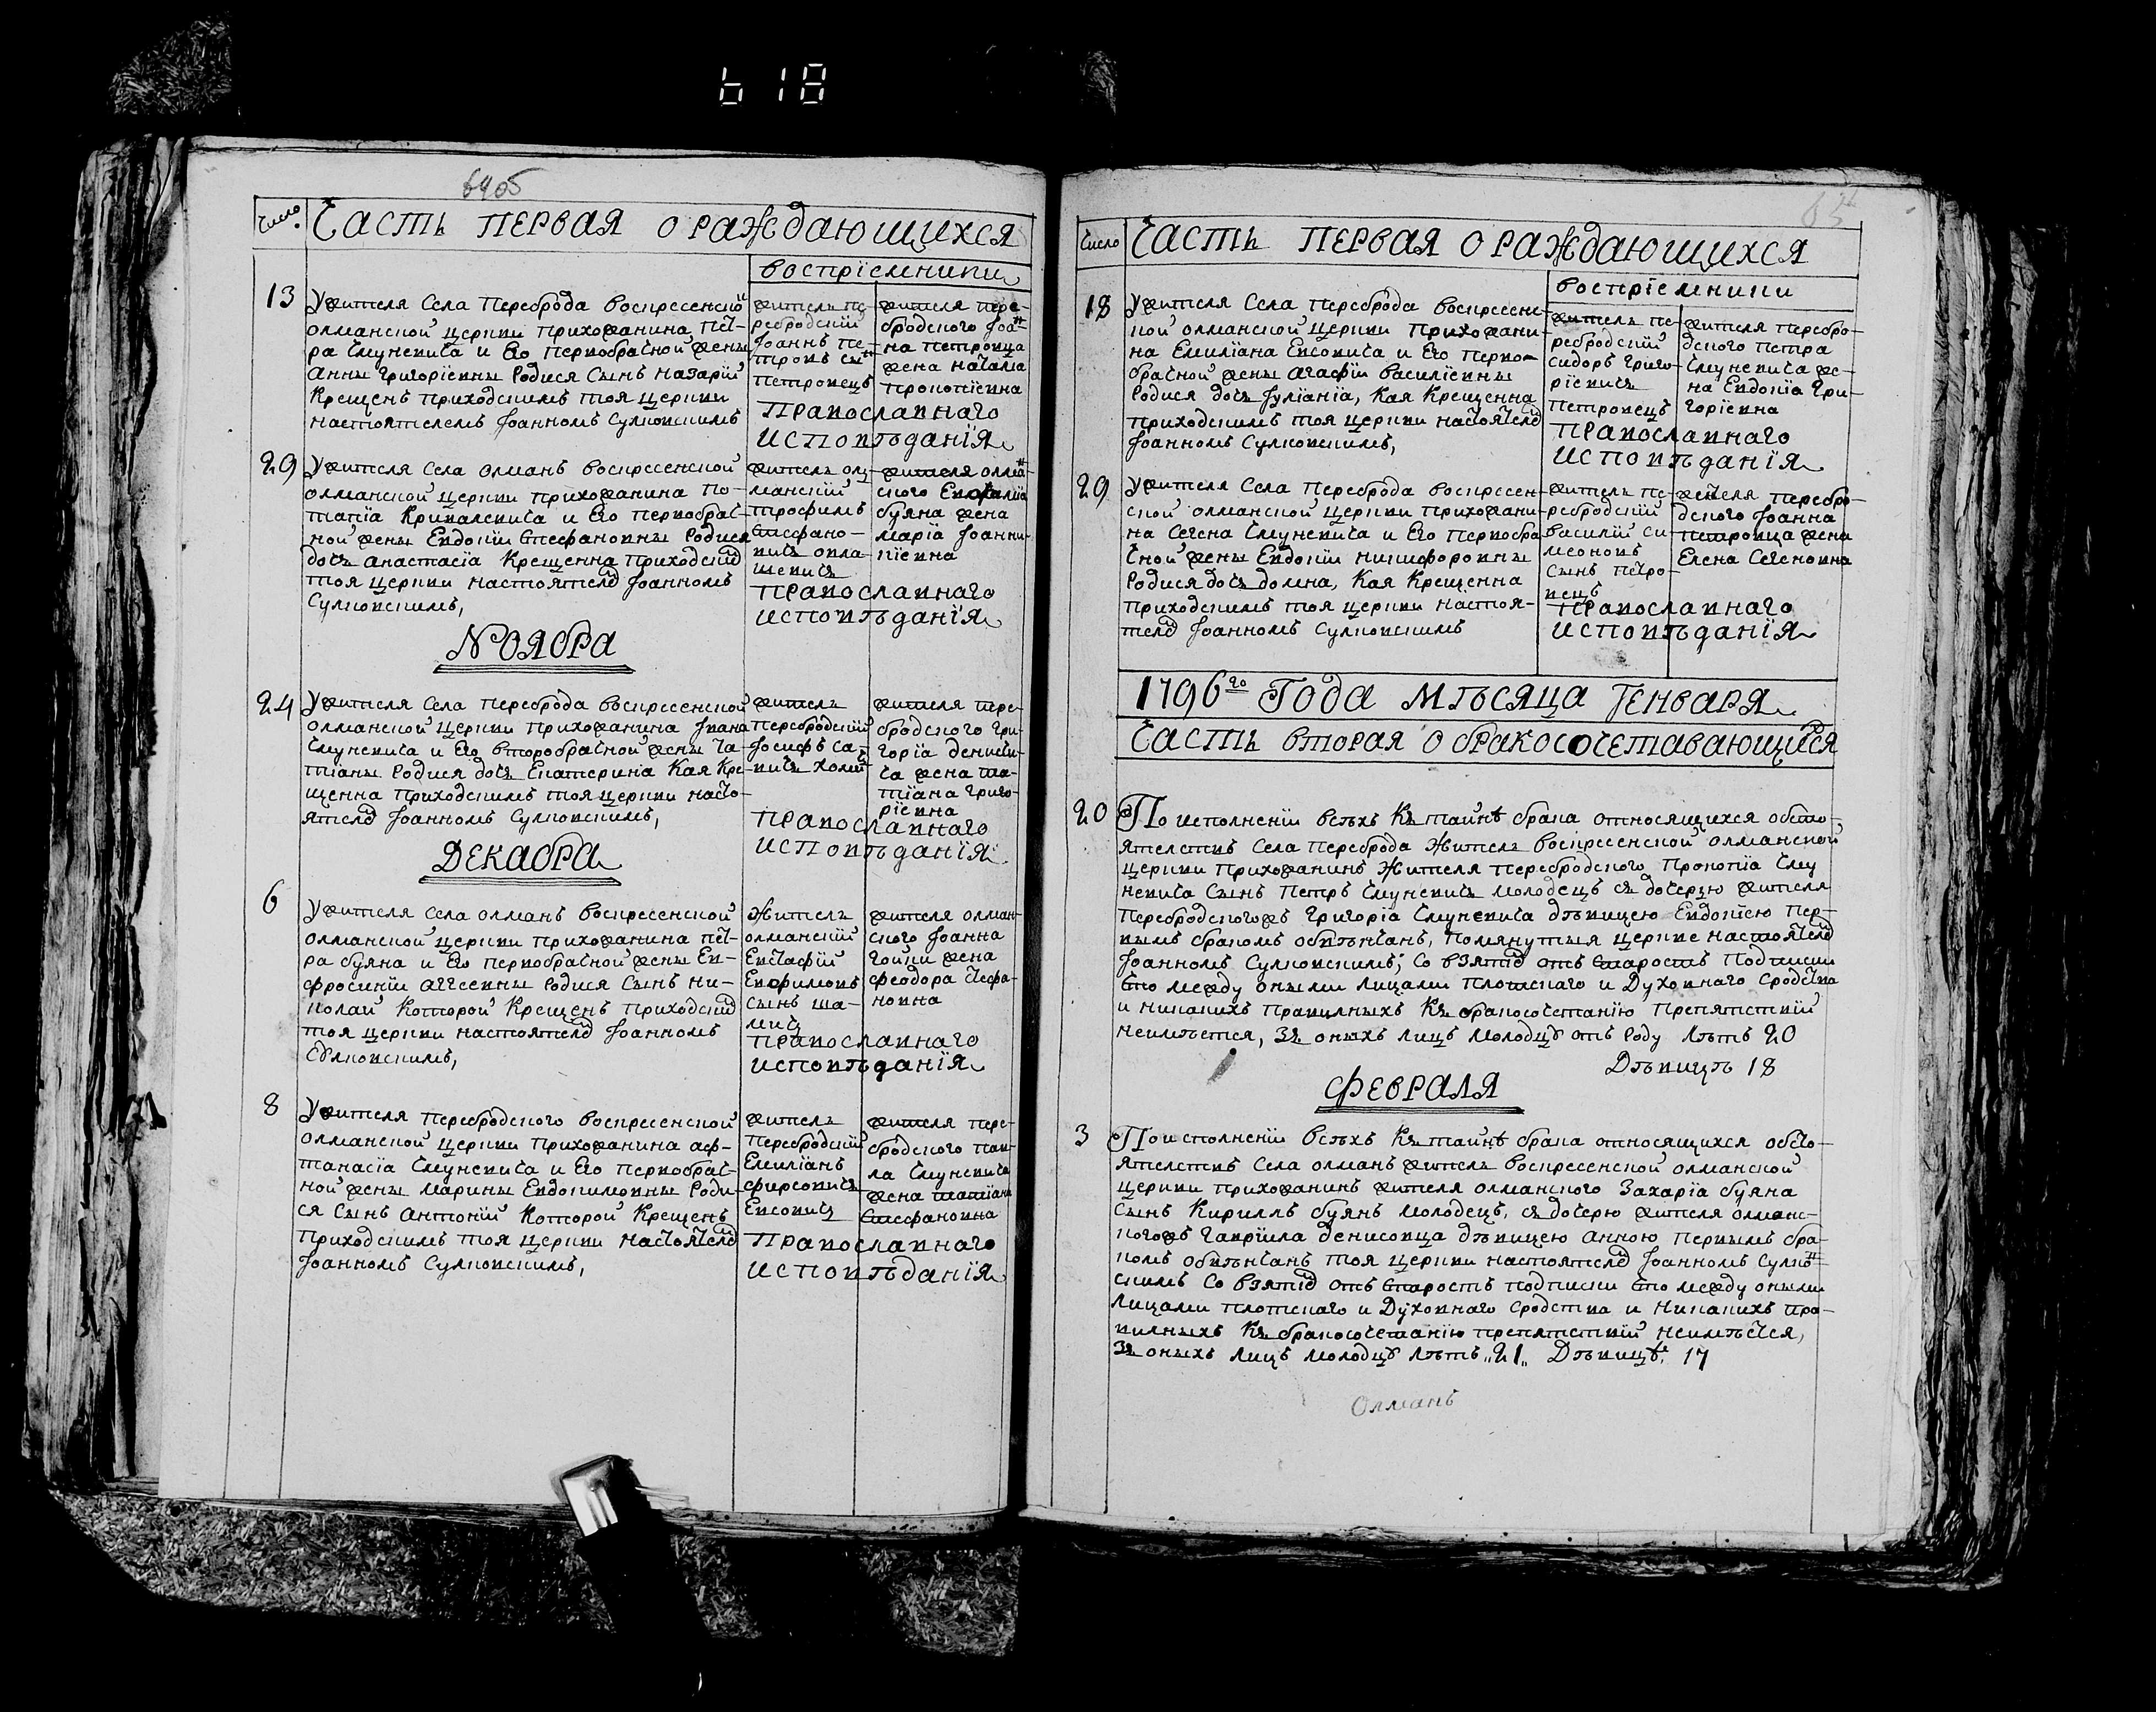 618
Число
Часть первая о раждающихся
воспрїемники
13
У жителя Села Переброда воскресенской
олманской церкви прихожанина Пет-
ра Смуневича и Его первобрачной жены
Анны григорїевны Родися Сынъ Назарїй
Крещенъ приходскимъ тоя церкви
настоятелемъ Іоанномъ Сулковскимъ
житель Пе-
ребродскїй
Іоаннъ Пе-
тровъ сынъ
Петровецъ
жителя пере-
бродского Іоан-
на Петровца
жена Наталїа
Прокопїевна
Православнаго
исповѣданїя
29
У жителя Села олманъ воскресенской
олманской церкви прихожанина По-
тапїа Кривалевича и Его первобрач-
ной жены Евдокїи Стефановны Родися
дочь анастасїа Крещенна Приходским
тоя церкви настоятелем Іоанномъ
Сулковскимъ,
житель ол-
манскїй
трофимъ
Стефано-
вичъ
жителя олман-
ского
буяна жена
марїа Іоанни-
кїевна
Православнаго
исповѣданїя
Ноября
24
У жителя Села Переброда воскресенской
олманской церкви прихожанина Іоана
Смуневича и Его второбрачной жены Та-
тїаны Родися дочь Екатерина Кая Кре-
щенна приходскимъ тоя церкви насто-
ятелем Іоанномъ Сулковскимъ,
житель
Перебродскїй
Іосифъ Са-
вичъ
жителя пере-
бродского гри-
горїа денисеви-
ча жена та-
тїана григо-
рїевна
Православнаго
исповѣданїя
Декабра
6
У жителя Села олманъ воскресенской
олманской церкви прихожанина Пет-
ра буяна и Его первобрачной жены Ев-
фросинїи Родися Сынъ Ни-
колай Которой Крещенъ приходским
тоя церкви настоятелем Іоанномъ
Сулковскимъ,
Житель
олманскїй
Евстафїй
Евфимовъ
Сынъ ша-
мицъ
жителя олман-
ского Іоанна
жена
феодора Стефа-
новна
Православнаго
исповѣданїя
8
У жителя перебродского воскресенской
олманской церкви прихожанина аф-
танасїа Смуневича и Его первобрач-
ной жены Марины Евдокимовны Роди-
ся Сынъ Антонїй Которой Крещенъ
Приходскимъ тоя церкви настоятелем
Іоанномъ Сулковскимъ,
житель
Перебродскїй
Емилїанъ
фирсовичъ
Евсовичъ
жителя пере-
бродского Пав-
ла Смуневича
жена татїана
Стефановна
Православнаго
исповѣданїя
Число
Часть первая о раждающихся
воспрїемники
18
У жителя Села Переброда воскресенс-
кой олманской церкви прихожани-
на Емилїана Евсовича и Его перво-
брачной жены агафїи василїевны
Родися дочь Іулїанїа, Кая Крещенна
приходскимъ тоя церкви настоятелем
Іоанномъ Сулковскимъ,
житель пе-
ребродскїй
Сидоръ григо-
рїевичъ
Петровецъ
жителя перебро-
дского Петра
Смуневича же-
на Евдокїа гри-
горїевна
Православнаго
исповѣданїя
29
У жителя Села Переброда воскресен-
ской олманской церкви прихожани-
на Смуневича и Его первобра-
чной жены Евдокїи никифоровны
Родися дочь домна, Кая Крещенна
приходскимъ тоя церкви настоя-
телем Іоанномъ Сулковскимъ
житель пе-
ребродскїй
василїй си-
меоновъ
Сынъ Петро-
вецъ
жителя перебро-
дского Іоанна
Петровца жена
Елена
Православнаго
исповѣданїя
1796го Года Мѣсяца Генваря
Часть вторая о бракосочетавающихся
20
По исполненїи всѣхъ Къ тайнѣ брака относящихся обсто-
ятелствъ Села Переброда Житель воскресенской олманской
церкви прихожанинъ Жителя перебродского Прокопїа Сму-
невича Сынъ Петръ Смуневичъ молодецъ съ дочерю жителя
Перебродскогожъ григорїа Смуневича дѣвицею Евдокїею Пер-
вымъ бракомъ обвѣнчанъ, помянутыя церкве настоятелем
Іоанномъ Сулковскимъ; Со взятїем отъ Старостъ подписки
что между оными лицами плотскаго и Духовнаго Сродства
и никакихъ правилныхъ Къ бракосочетанїю препятствїй
неимѣется, Зъ оныхъ лицъ молодцу отъ Роду лѣтъ 20
Дѣвицѣ 18
Февраля
3
По исполненїи всѣхъ Къ тайнѣ брака относящихся обсто-
ятелствъ Села олманъ житель воскресенской олманской
церкви прихожанинъ жителя олманского Захарїа буяна
Сынъ Кириллъ буянъ молодецъ, съ дочерю жителя олманс-
когожъ гаврїила денисовца дѣвицею Анною первымъ бра-
комъ обвѣнчанъ тоя церкви настоятелем Іоанномъ Сулков-
скимъ Со взятїем отъ Старостъ подписки что между оными
лицами плотскаго и Духовнаго Сродства и никакихъ пра-
вилныхъ Къ бракосочетанїю препятствїй неимѣется,
Зъ оныхъ лицъ молодцу лѣтъ „21„ Дѣвицѣ: 17
Олмань